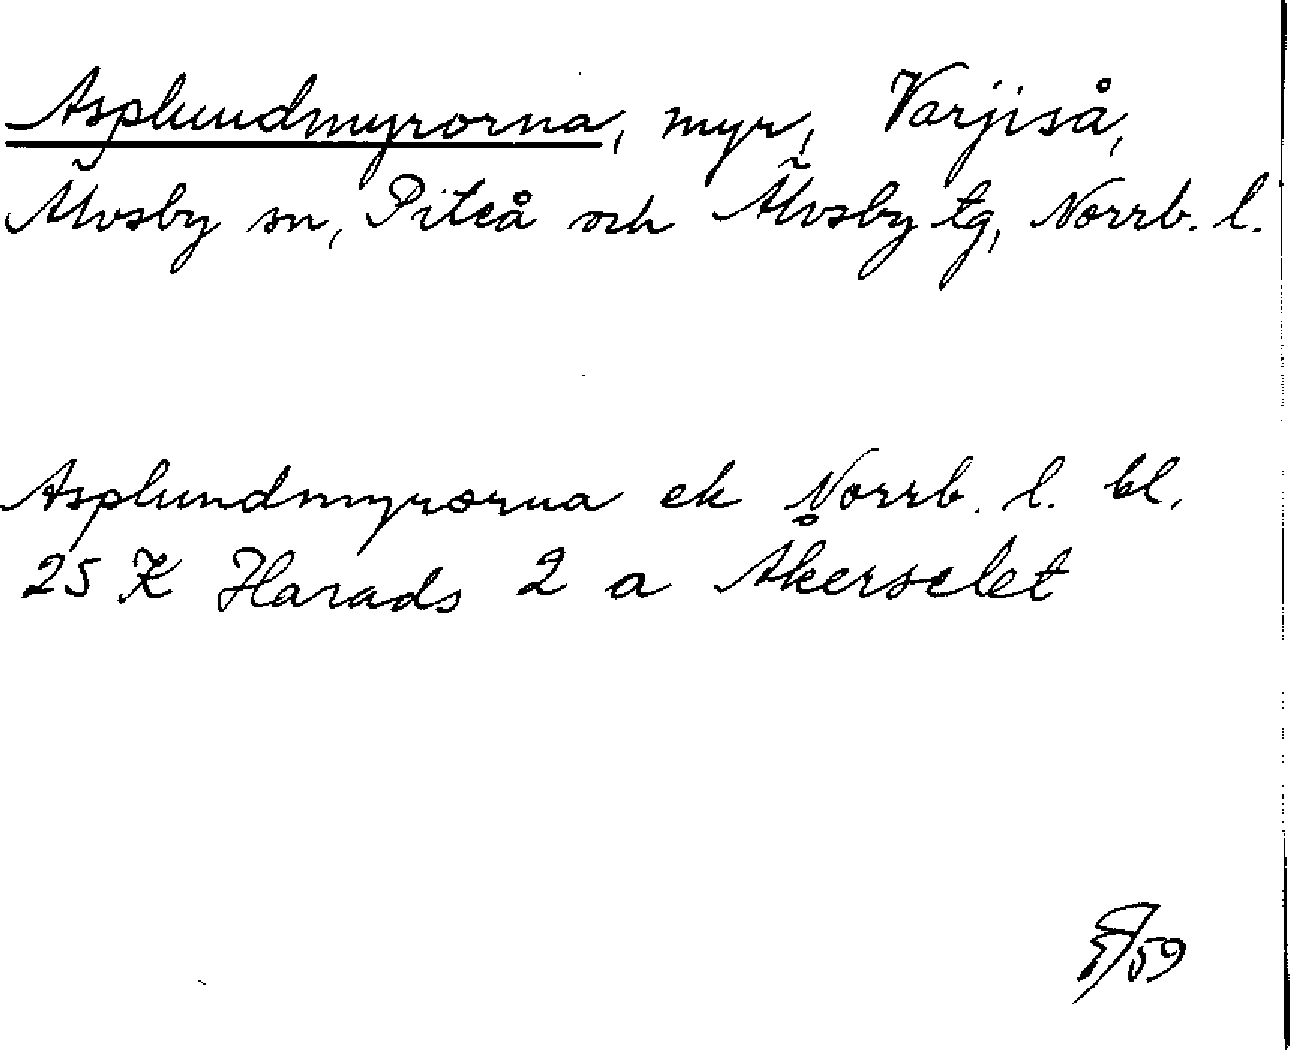 Asplundmyrorna, myr, Varjiså,
Älvsby sn, Piteå och Älvsby tg, Norrb. l.
Asplundmyrorna ek Norrb. l. bl.
25 K Harads 2 a Åkerselet
/59